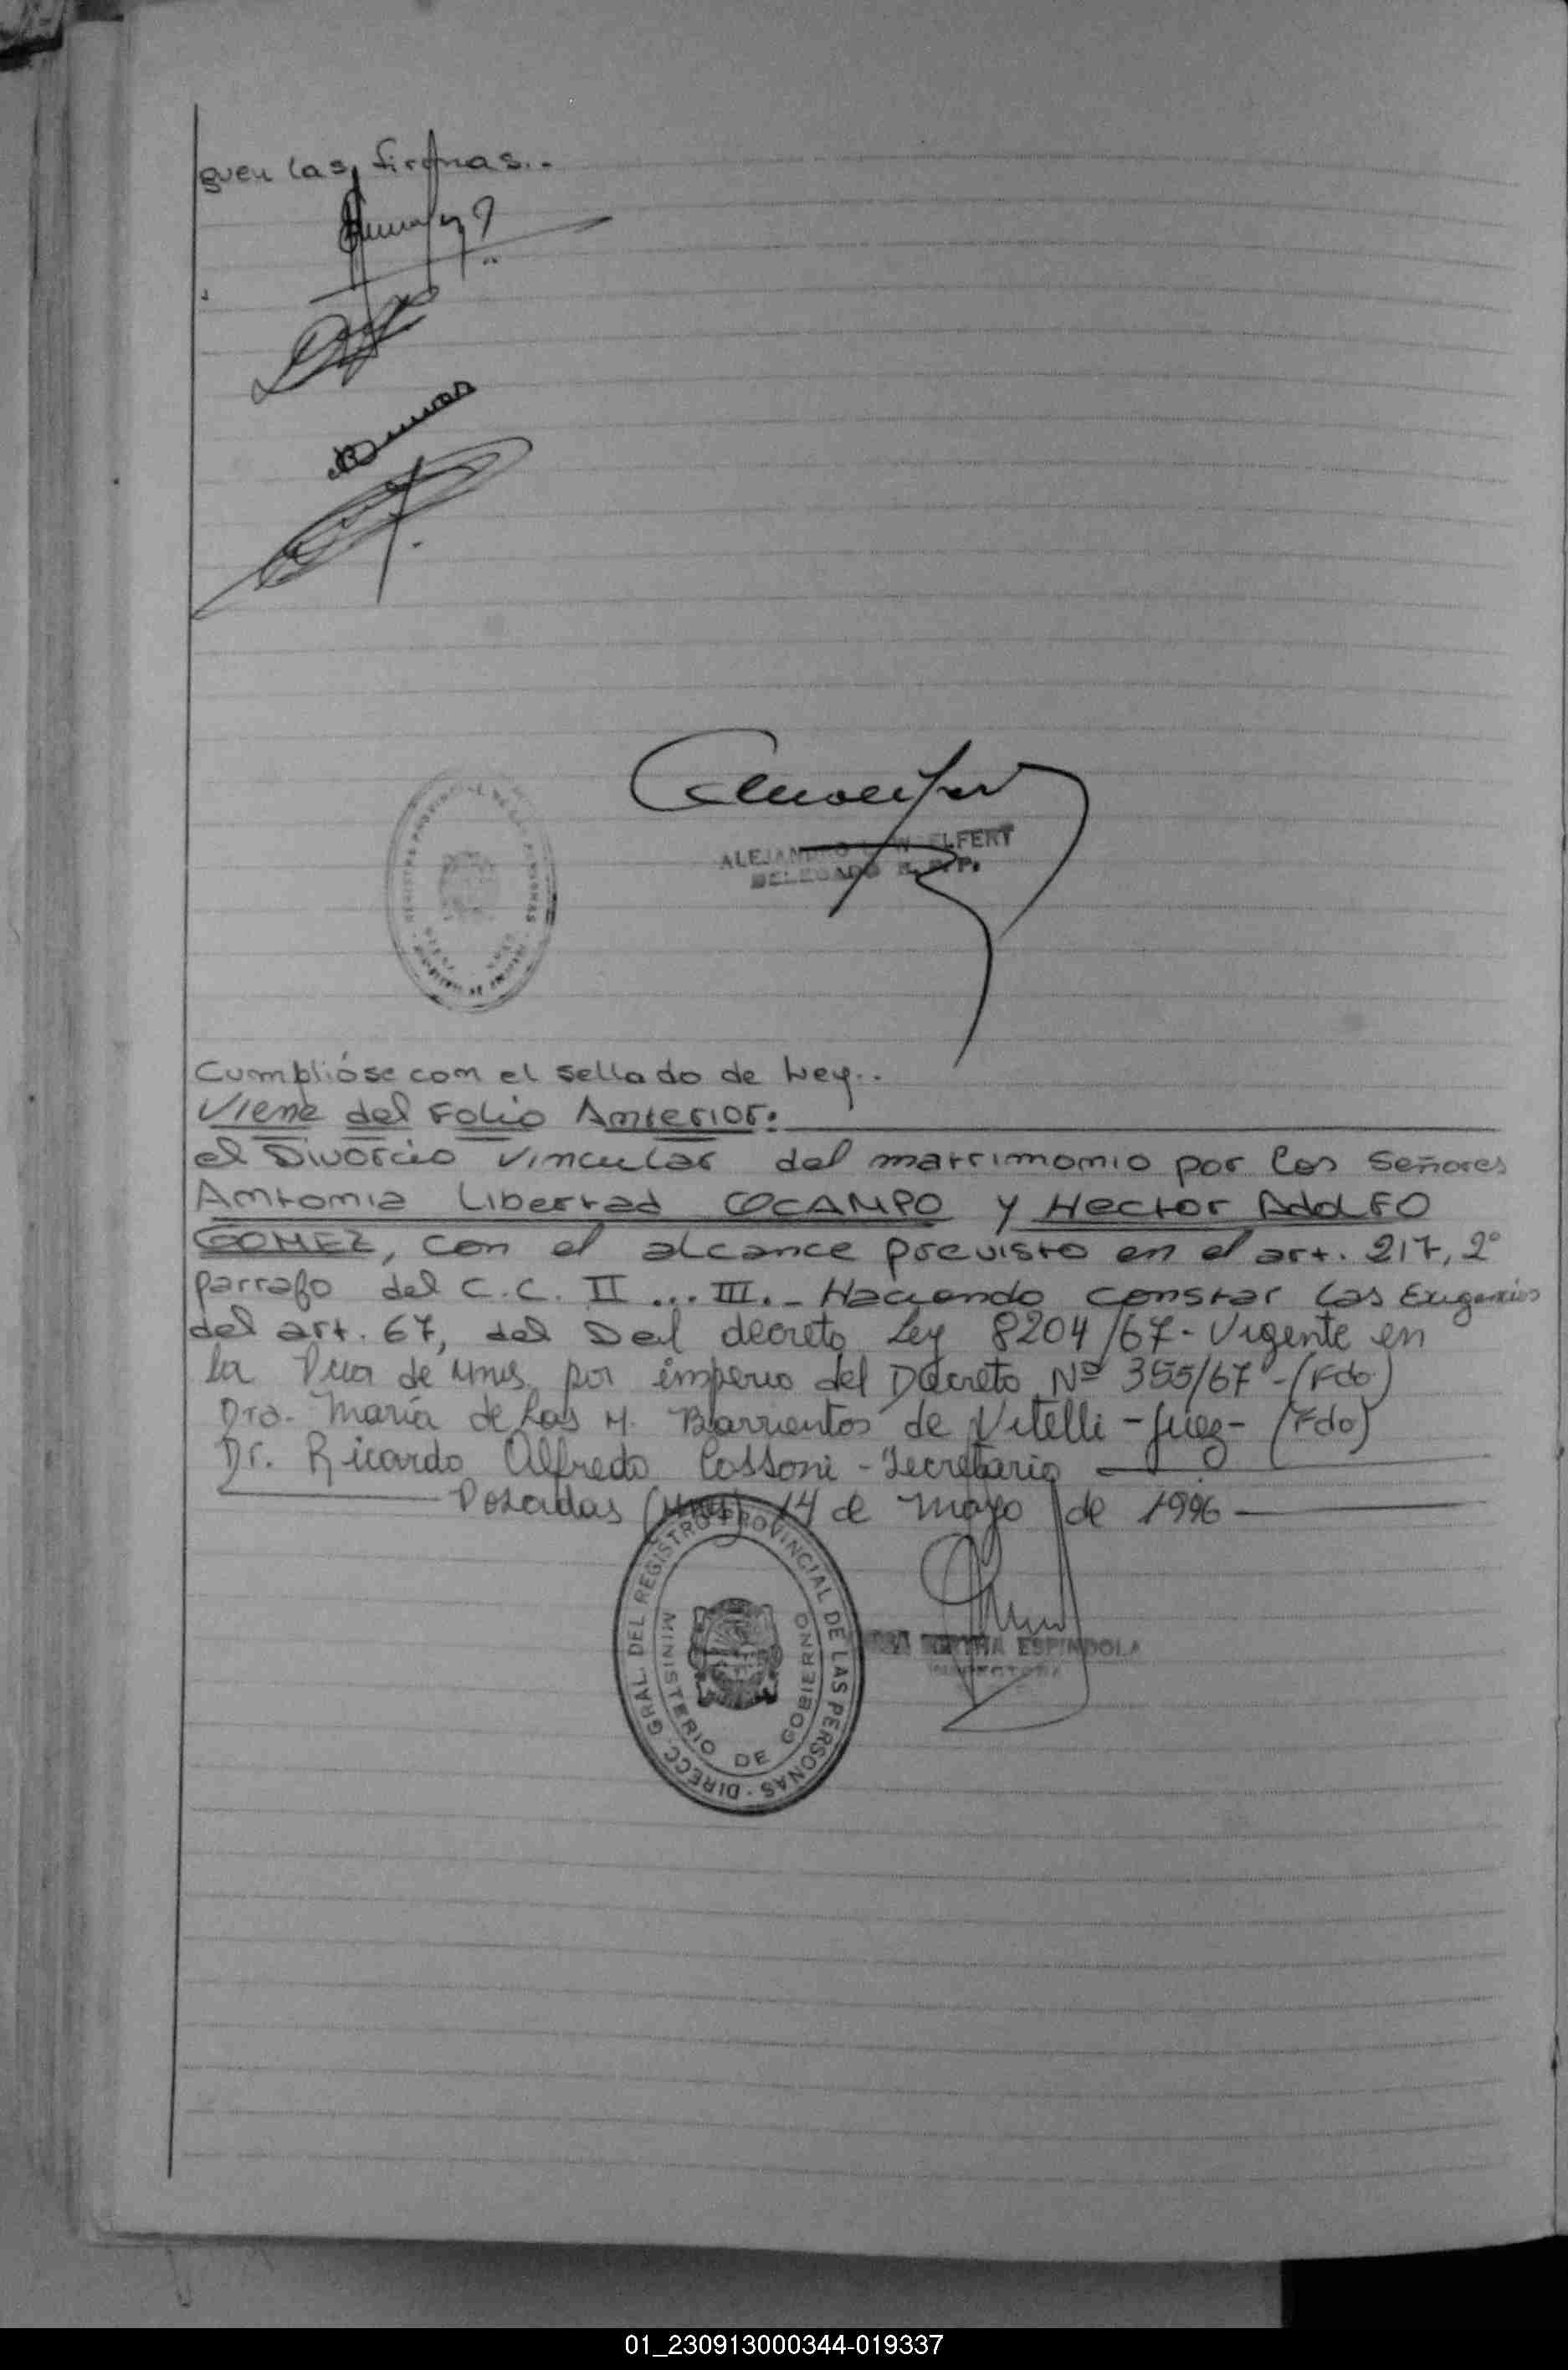 guen las firmas..
ALEJANDRO ELFERT
DELEGADO R. P. P.
REGISTRO PROVINCIAL DE LAS PERSONAS
Cumplióse con el sellado de Ley..
Viene del Folio Anterior:
el Divorcio Vincular del matrimonio por los Señores
Antonia Libertad OCAMPO y Hector Adolfo
GOMEZ, con el alcance previsto en el art. 217, 2°
parrafo del C.C. II ... III.- Haciendo constar las Exigencias
del art. 67, del decreto Ley 8204/67- Vigente en
la Pcia de Mnes por imperio del Decreto Nº 355/67-(Fdo)
Dra. María de las M. Barrientos de Vitelli - Juez- (Fdo)
Dr. Ricardo Alfredo Cassoni - Secretario
Posadas (Mnes) 14 de Mayo de 1996
DIRECC. GRAL. DEL REGISTRO PROVINCIAL DE LAS PERSONAS -
MINISTERIO DE GOBIERNO
ESPINDOLA
INSPECTORA
01_230913000344-019337